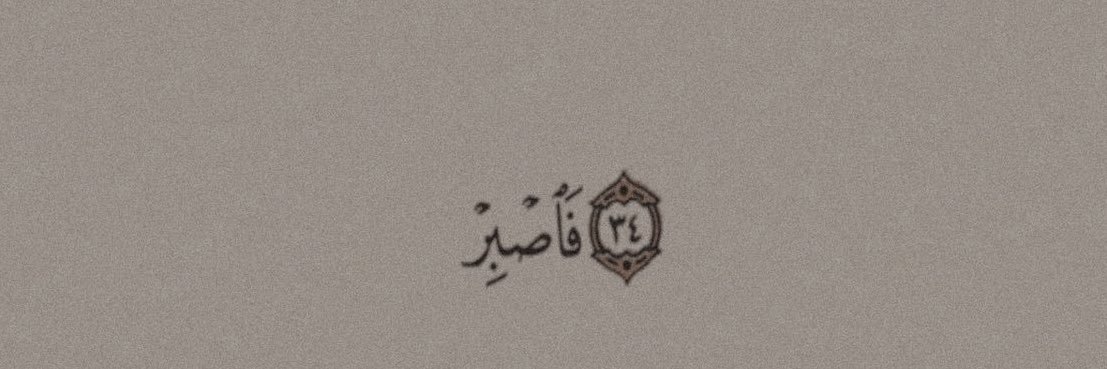 ٣٤ فَٱصْبِرْ